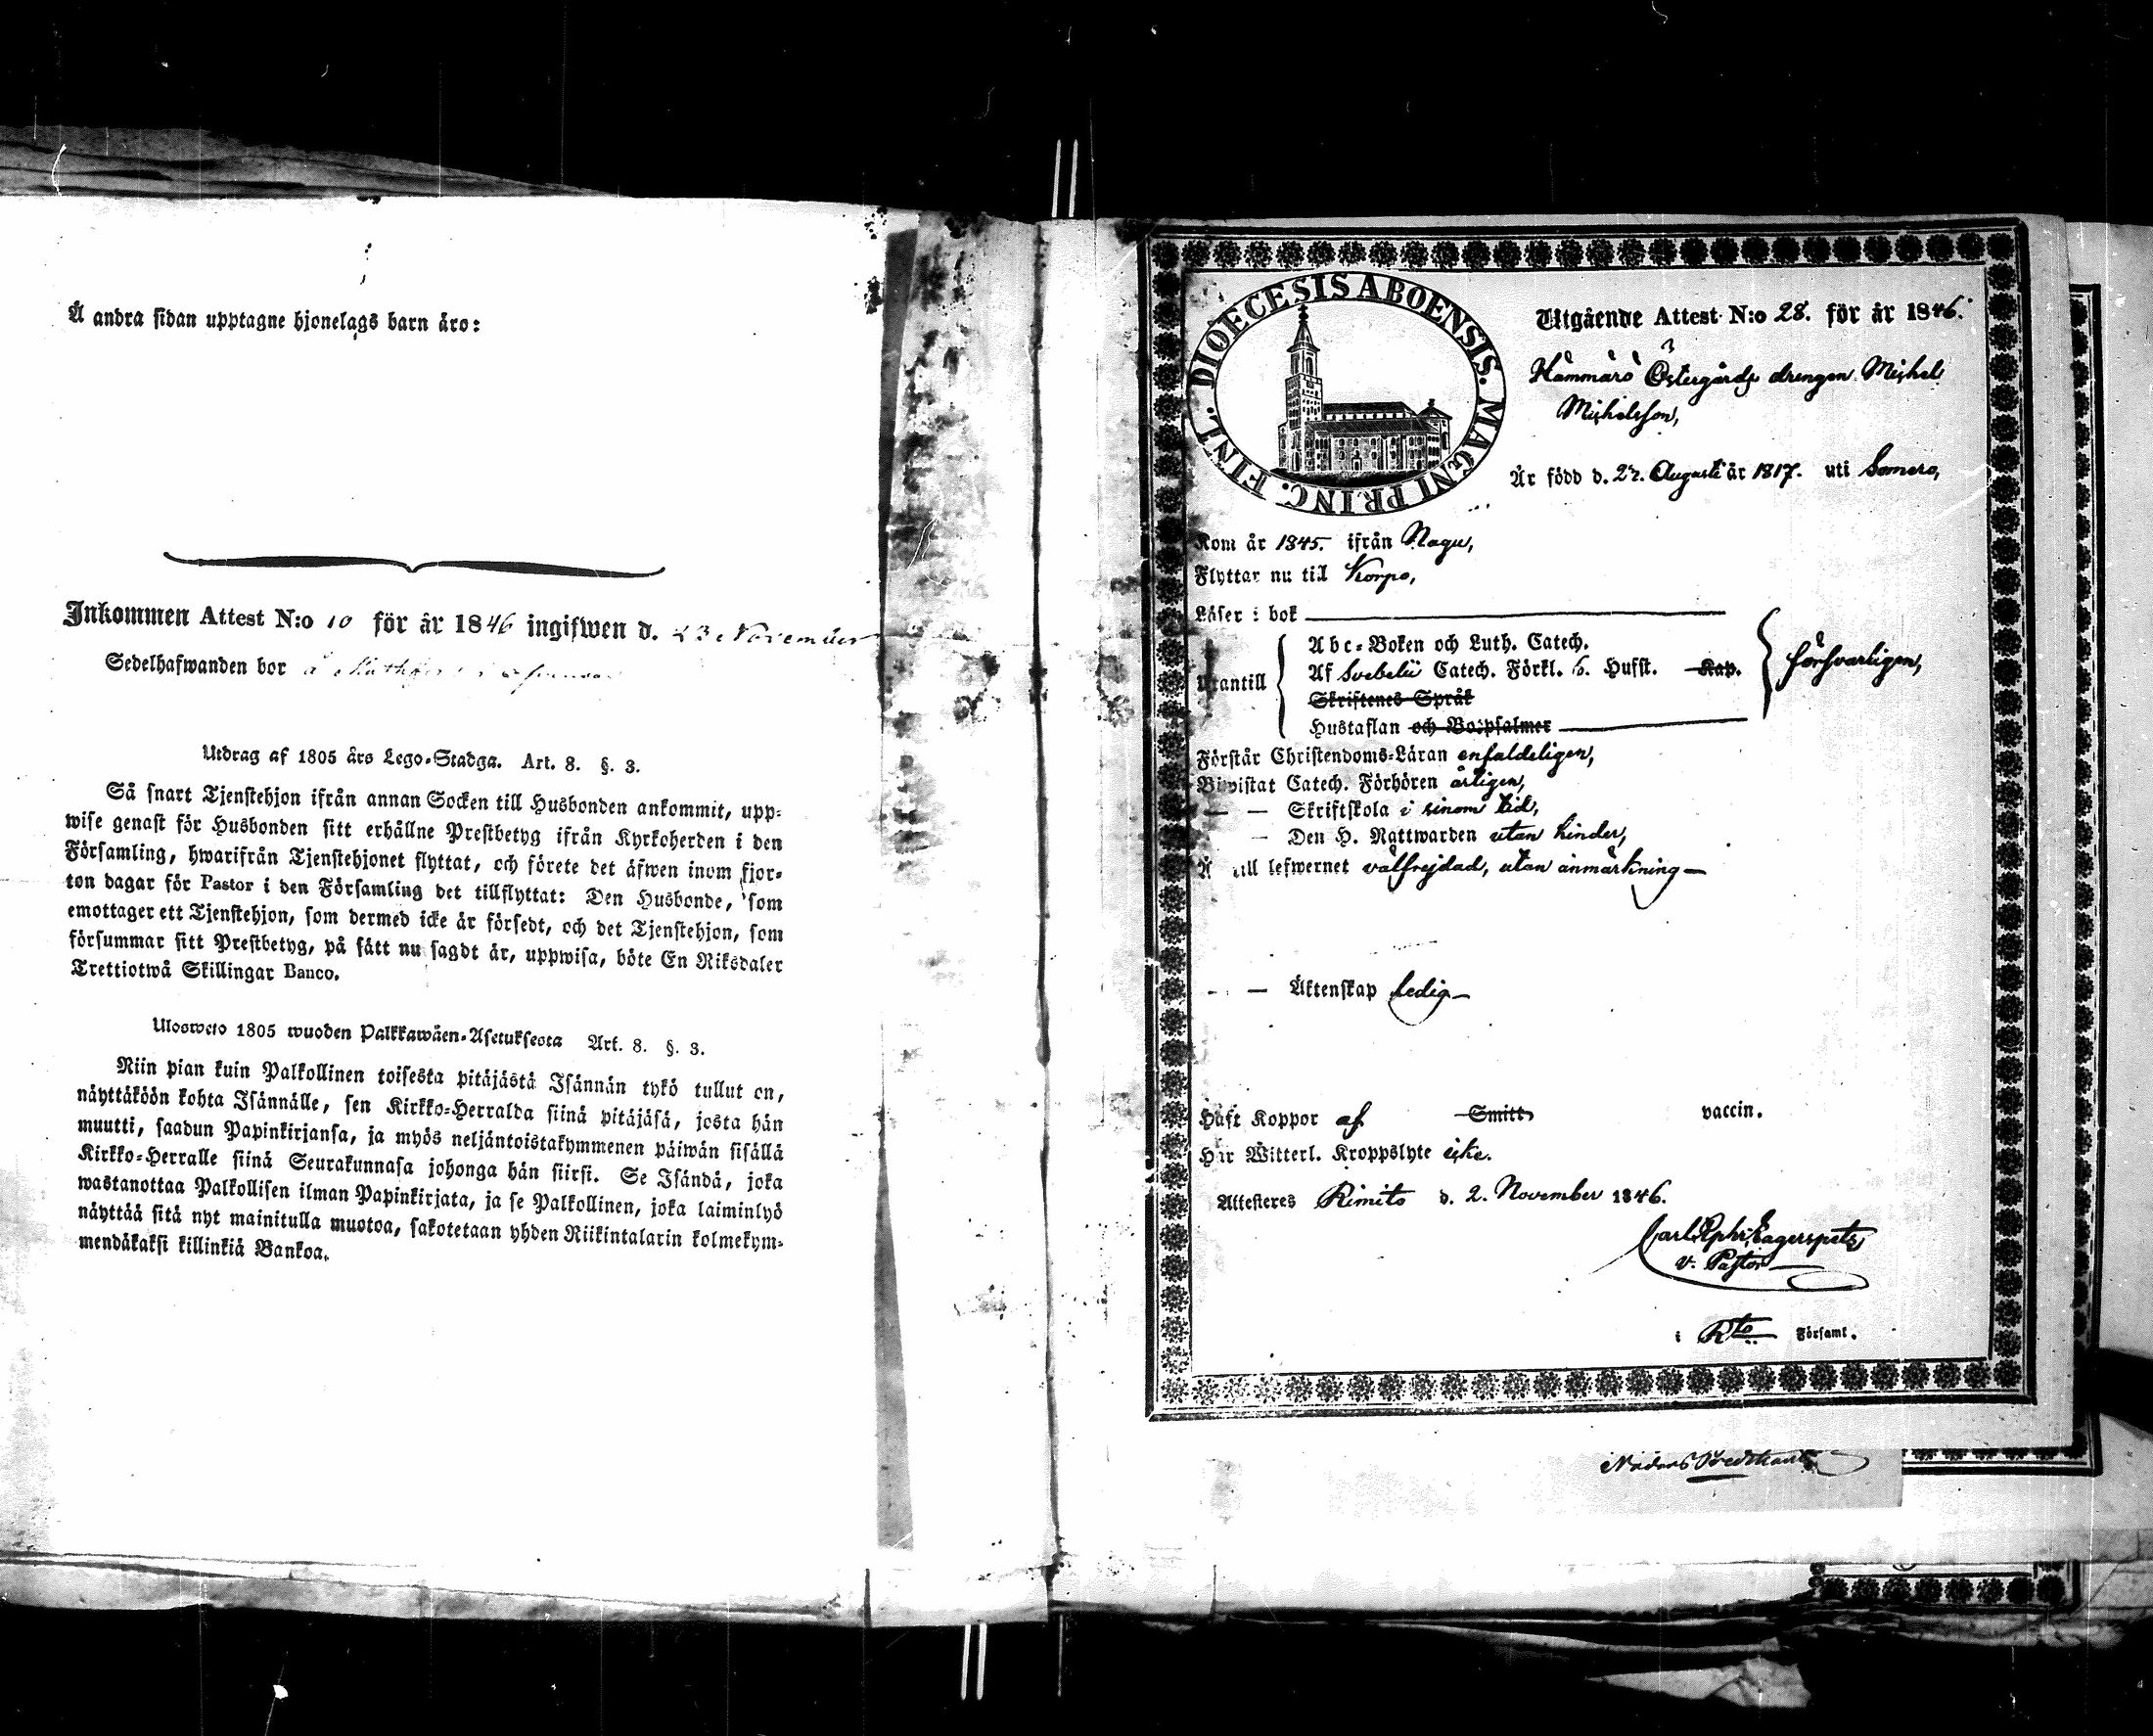 Å andra sidan upptagne hjonelags barn äro:
Inkommen Attest N:o 10 för år 1846 ingifwen d. 23 November
Sedelhafwanden bor å
Utdrag af 1805 års Lego-Stadga. Art. 8. §. 3.
Så snart Tjenstehjon ifrån annan Socken till Husbonden ankommit, upp-
wise genast för Husbonden sitt erhållne Prestbetyg ifrån Kyrkoherden i den
Församling, hwarifrån Tjenstehjonet flyttat, och förete det äfwen inom fjor-
ton dagar för Pastor i den Församling det tillflyttat: Den Husbonde, som
emottager ett Tjenstehjon, som dermed icke är försedt, och det Tjenstehjon, som
försummar sitt Prestbetyg, på sätt nu sagdt är, uppwisa, böte En Riksdaler
Trettiotwå Skillingar Banco.
Ulosweto 1805 wuoden Palkkawäen-Asetuksesta Art. 8. §. 3.
Niin pian kuin Palkollinen toisesta pitäjästä Isännän tykö tullut on,
näyttäköön kohta Isännälle, sen Kirkko-Herralda siinä pitäjäsä, josta hän
muutti, saadun Papinkirjansa, ja myös neljäntoistakymmenen päiwän sisällä
Kirkko-Herralle siinä Seurakunnasa johonga hän siirsi. Se Isändä, joka
wastanottaa Palkollisen ilman Papinkirjata, ja se Palkollinen, joka laiminlyö
näyttää sitä nyt mainitulla muotoa, sakotetaan yhden Riikintalarin kolmekym-
mendäkaksi killinkiä Bankoa.
DIOECESIS ABOENSIS. MAGNI PRINC. FINL.
Utgående Attest N:o 28. för år 1846.
Hämmärö Östergårds drengen Michel
Michelsson,
Är född d. 27. Augusti år 1817. uti Somero,
Kom år 1845. ifrån Nagu,
Flyttar nu till Korpo,
Läser i bok
Utantill
Abc-Boken och Luth. Catech.
Af Svebelii Catech. Förkl. 6. Husst. Kap.
försvarligen,
Skriftenes Språk
Hustaflan och Botpsalmer
Förstår Christendoms-Läran enfaldeligen,
Biwistat Catech. Förhören årligen,
— — Skriftskola i sinom tid,
— Den H. Nattwarden utan hinder,
Är till lefwernet välfrejdad, utan anmärkning —
— — Äktenskap ledig —
Haft Koppor af Smitt vaccin.
Har Witterl. Kroppslyte icke.
Attesteres Rimito d. 2. November 1846.
Carl Ephr. Lagerspetz
v. Pastor
i Rto Församl.